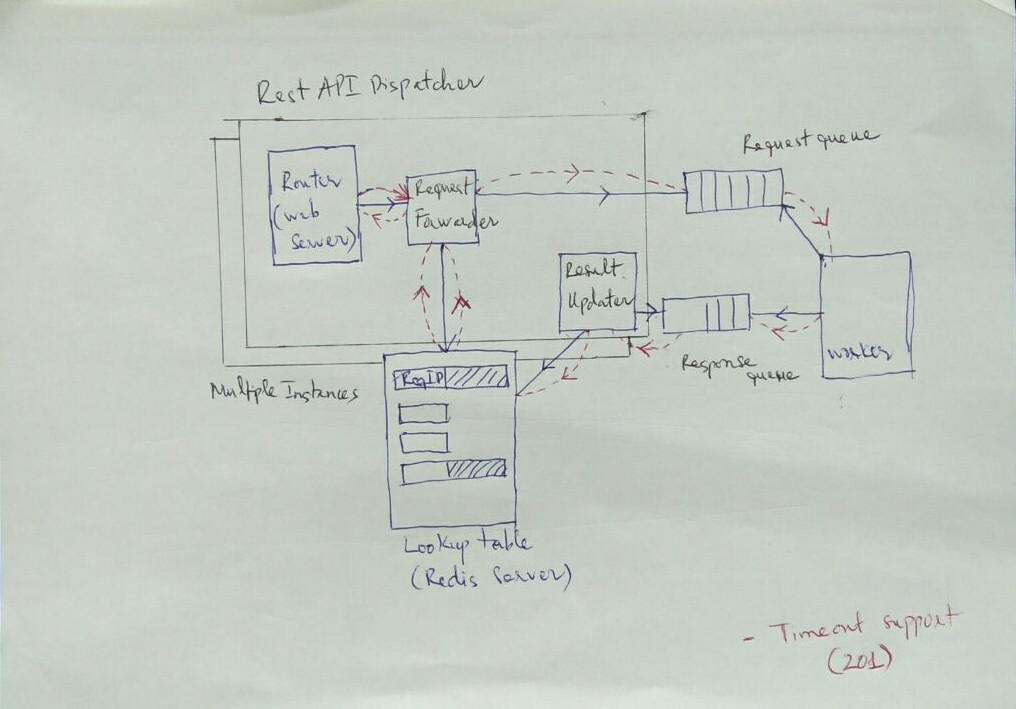 Rest API Dispatcher
Request queue
Router
(web
server)
Request
Forwarder
Result
Updater
Response
queue
worker
Multiple Instances
ReqID
Lookup table
(Redis Server)
- Timeout support
(201)